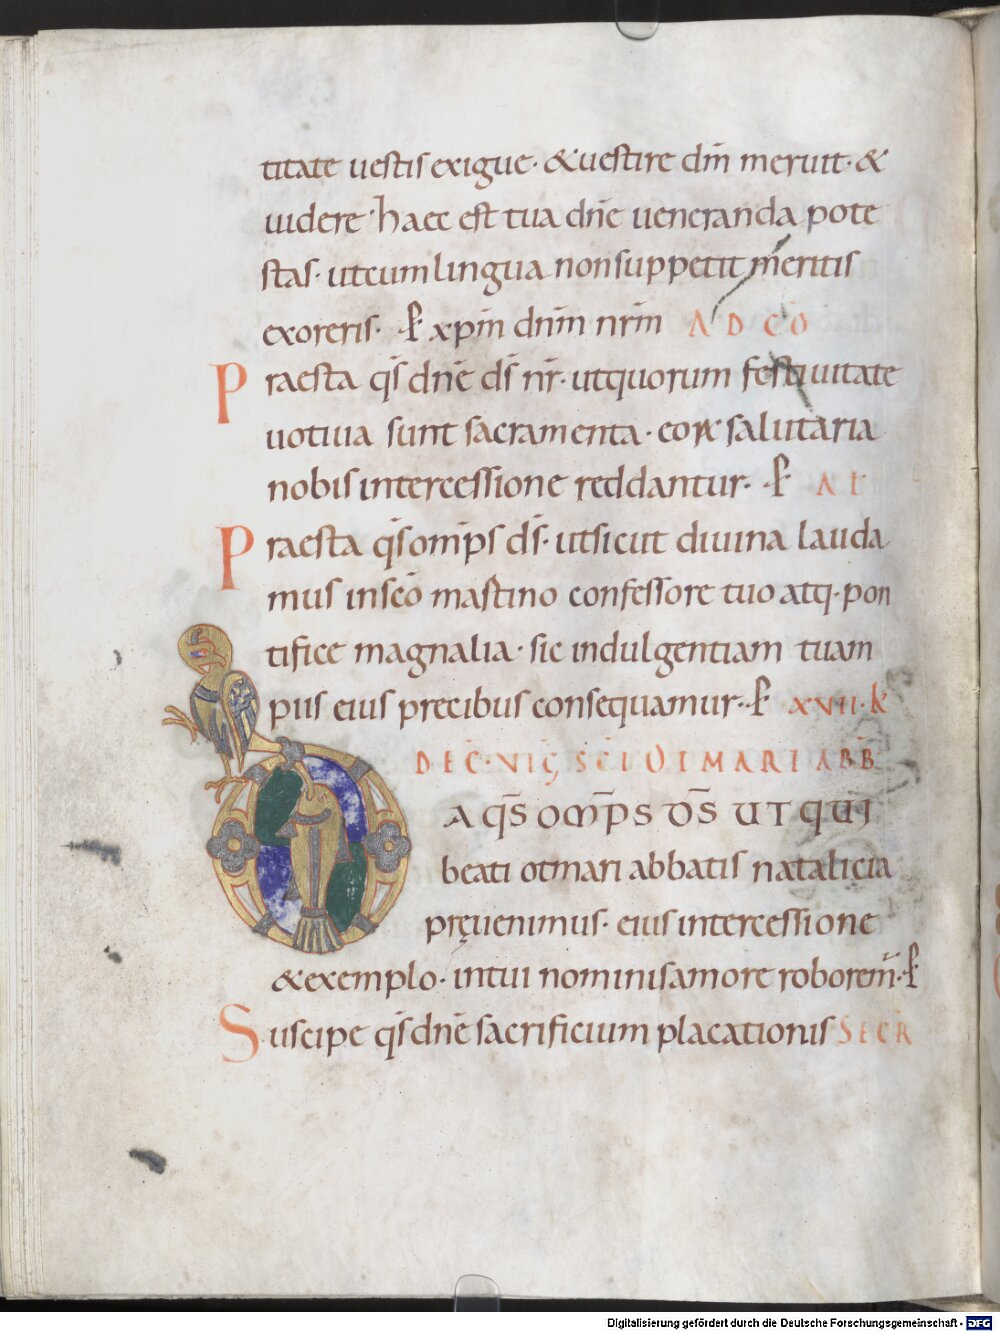 titate uestis exigue· &uestire dm̄ meruit· &
uidere· haec est tua dn̄e ueneranda pote
stas· utcum lingua non suppetit meritis
exoreris· ꝑ xp̄m dn̄m nr̄m AD CŌ
Praesta qs̄ dn̄e ds̄ nr̄· utquorum festiuitate
uotiua sunt sacramenta· eoꝝ salutaria
nobis intercessione reddantur· ꝑ AL
Praesta qs̄ omp̄s ds̄· utsicut diuina lauda
mus in scō mastino confessore tuo atq·pon
tifice magnalia· sic indulgentiam tuam
piis eius precibus consequamur· ꝑ XVII·K
DEC̄·VIḠ SC̄I OTMARI ABB̄
DA QS̄ OMP̄S DS̄ UT QUI
beati otmari abbatis natalicia
pręuenimus· eius intercessione
&exemplo· intui nominis amore roborem̄·ꝑ
Suscipe qs̄ dn̄e sacrificium placationis SECR
Digitalisierung gefördert durch die Deutsche Forschungsgemeinschaft - DFG